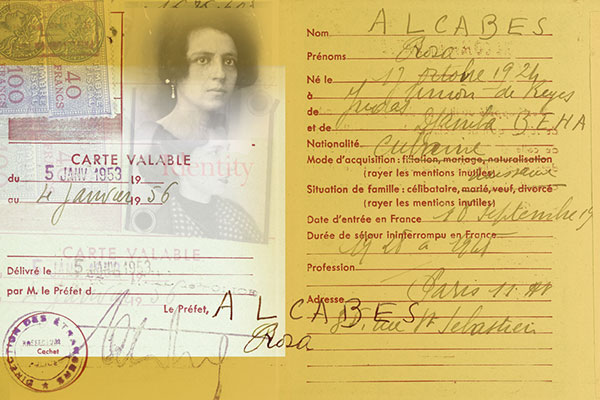 100 FRANCS
40 FRANCS
CARTE VALABLE
du 5 JANV 1953 19
au 4 janvier 19 56
Identity
CARTE VALABLE
5 JANV 1953
Délivré le
par M. le Préfet d
Le Préfet,
ALCABES
Rosa
DIRECTION DES ÉTRANGERS
Cachet
Nom ALCABES
Prénoms Rosa
Né le 17 octobre 1924
de
et de BEHA
Nationalité cubaine
Mode d'acquisition : filiation, mariage, naturalisation
(rayer les mentions inutiles)
Situation de famille : célibataire, marié, veuf, divorcé
(rayer les mentions inutiles)
Date d'entrée en France 10 Septembre 19
Durée de séjour ininterrompu en France
1928 a
Profession
Adresse Paris 11
rue St Sebastien